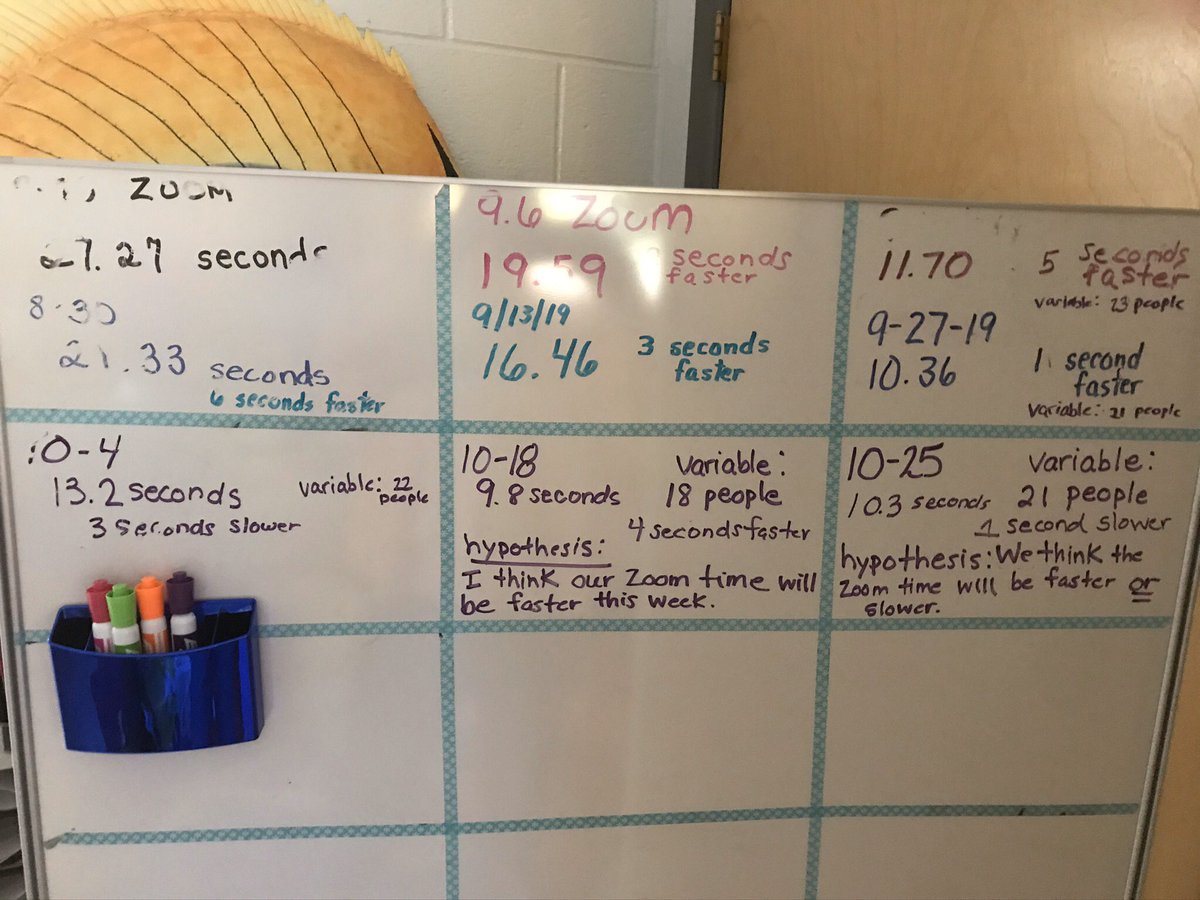 ZOOM
27.27 seconds
8.30
21.33 seconds
6 seconds faster
9.6 Zoom
19.59 seconds
faster
9/13/19
16.46 3 seconds
faster
11.70 5 seconds
faster
variable: 23 people
9-27-19
10.36 1 second
faster
variable: 21 people
10-4
13.2 seconds variable: 22
people
3 seconds slower
10-18 variable:
9.8 seconds 18 people
4 seconds faster
hypothesis:
I think our Zoom time will
be faster this week.
10-25 variable:
10.3 seconds 21 people
1 second slower
hypothesis: We think the
Zoom time will be faster or
slower.